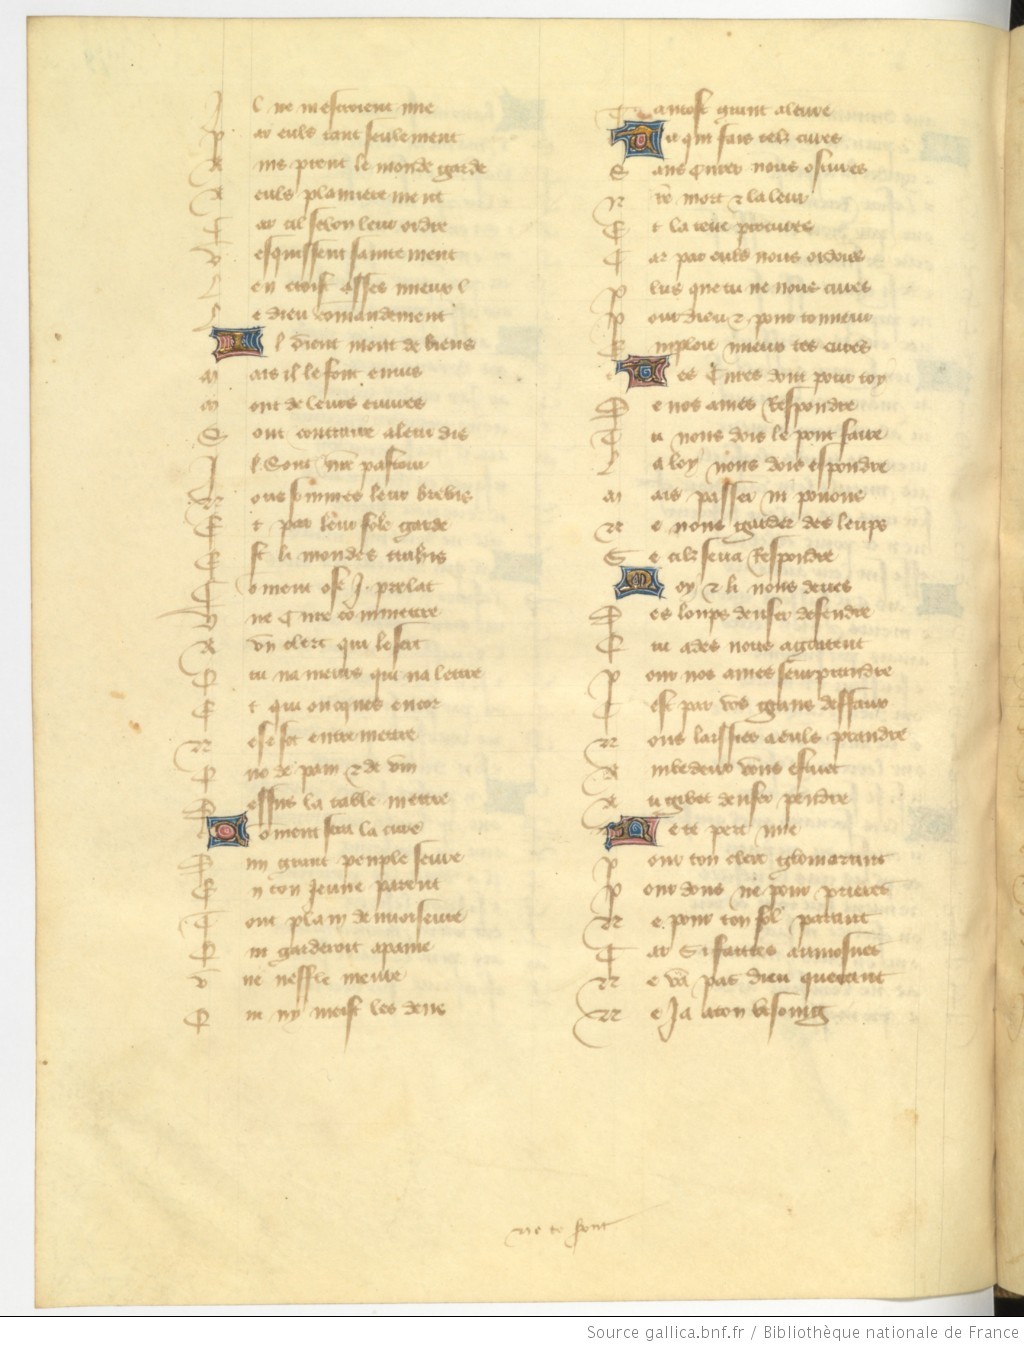 Il ne mescroient mie
Par euls tant seulement
Ains prent le monde garde
A euls plainierement
Car cil selon leur ordre
Vesquissent saintement
Len croist asses mieux l
Le dieu comandement
Il dient mont de biens
Mais il le font enuis
Mont de leurs euures
Sont contraire a leur dis
Il sont nre pastour
Nous sommes leur brebis
Et par leur fole garde
Est li mondes
Coment ose .I. prelat
Vne Cure cōmmettre
A vn clerc qui le sert
Qui na meurs qui na lettre
Et qui oncques encor
Ne se sot entremettre
Q de pain & de vin
Dessus la table mettre
Coment sera la cure
Du grant peuple seure
En ton jeune parent
Tout plain de
Qui garderoit a paine
Vne neffle meure
Quil ny meist les dens
Tantost grant aleure
Tu qui fais telz cures
Sans Curer nous oscures
Nre mort & la leur
Et la teue procures
Car par euls nous ordoies
Plus que tu ne nous cures
Pour dieu & pour tonneur
Emploie mieux tes cures
Les Cures dont pour toy
De nos ames Respondre
Tu nous dois le pont faire
La loy nous dois espondre
Mais passer ni pouons
Ne nous garder des leups
Se cilz seua Respondre
Moy & li nous deues
Des loups denfer defendre
Qui ades nous agaitent
Pour nos ames seurprandre
Cest par vos grans deffaux
Nous laissies a euls prandre
Ambedeux vous estuet
Au gibet denfer pendre
Ne te pert mie
Pour ton clerc
Pour dons ne pour prieres
Ne pour ton fol parant
Car Si faittes aumosnes
Ne va pas dieu querant
Ne Ja a ton besoing
ne te font
Source gallica.bnf.fr / Bibliothèque nationale de France